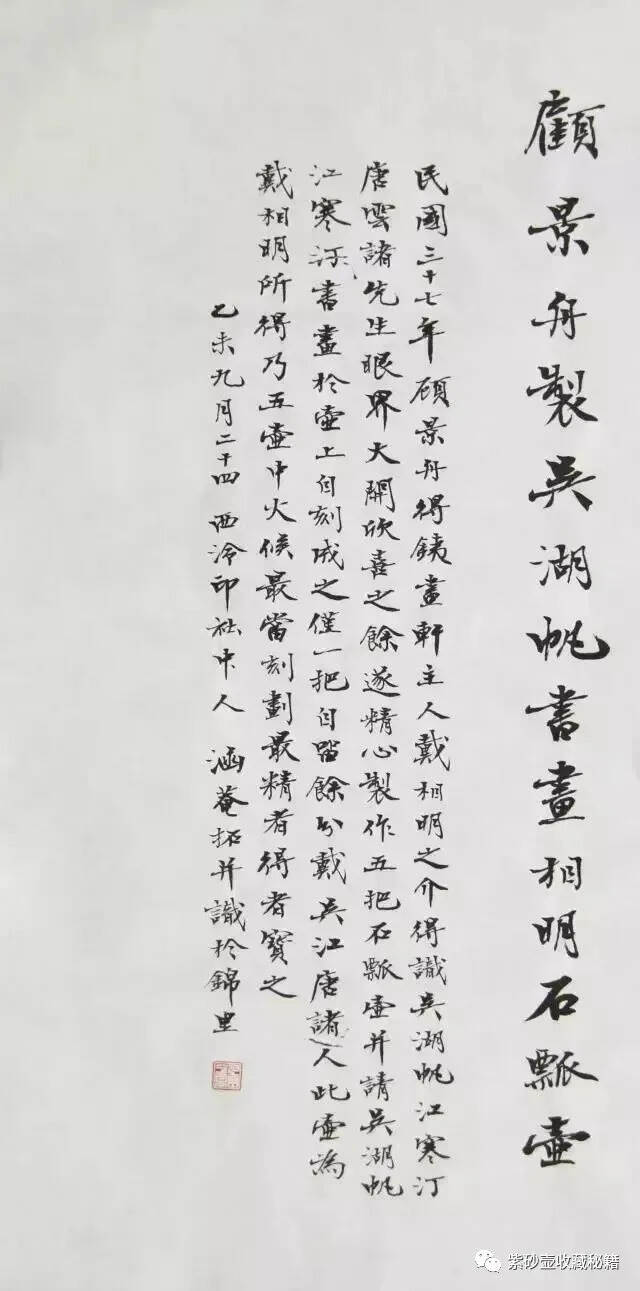 顧景舟製吳湖帆書畫相明石瓢壺
民國三十七年顾景舟得鉄畫軒主人戴相明之介得識吳湖帆江寒汀
唐雲諸先生眼界大開欣喜之餘遂精心製作五把石瓢壺并請吳湖帆
江寒汀書畫於壺上自刻成之僅一把自留餘分戴吳江唐諸人此壺為
戴相明所得乃五壺中火候最當刻劃最精者得者寶之
乙未九月二十四 西泠印社中人 涵菴拓并識於錦里
紫砂壶收藏秘籍